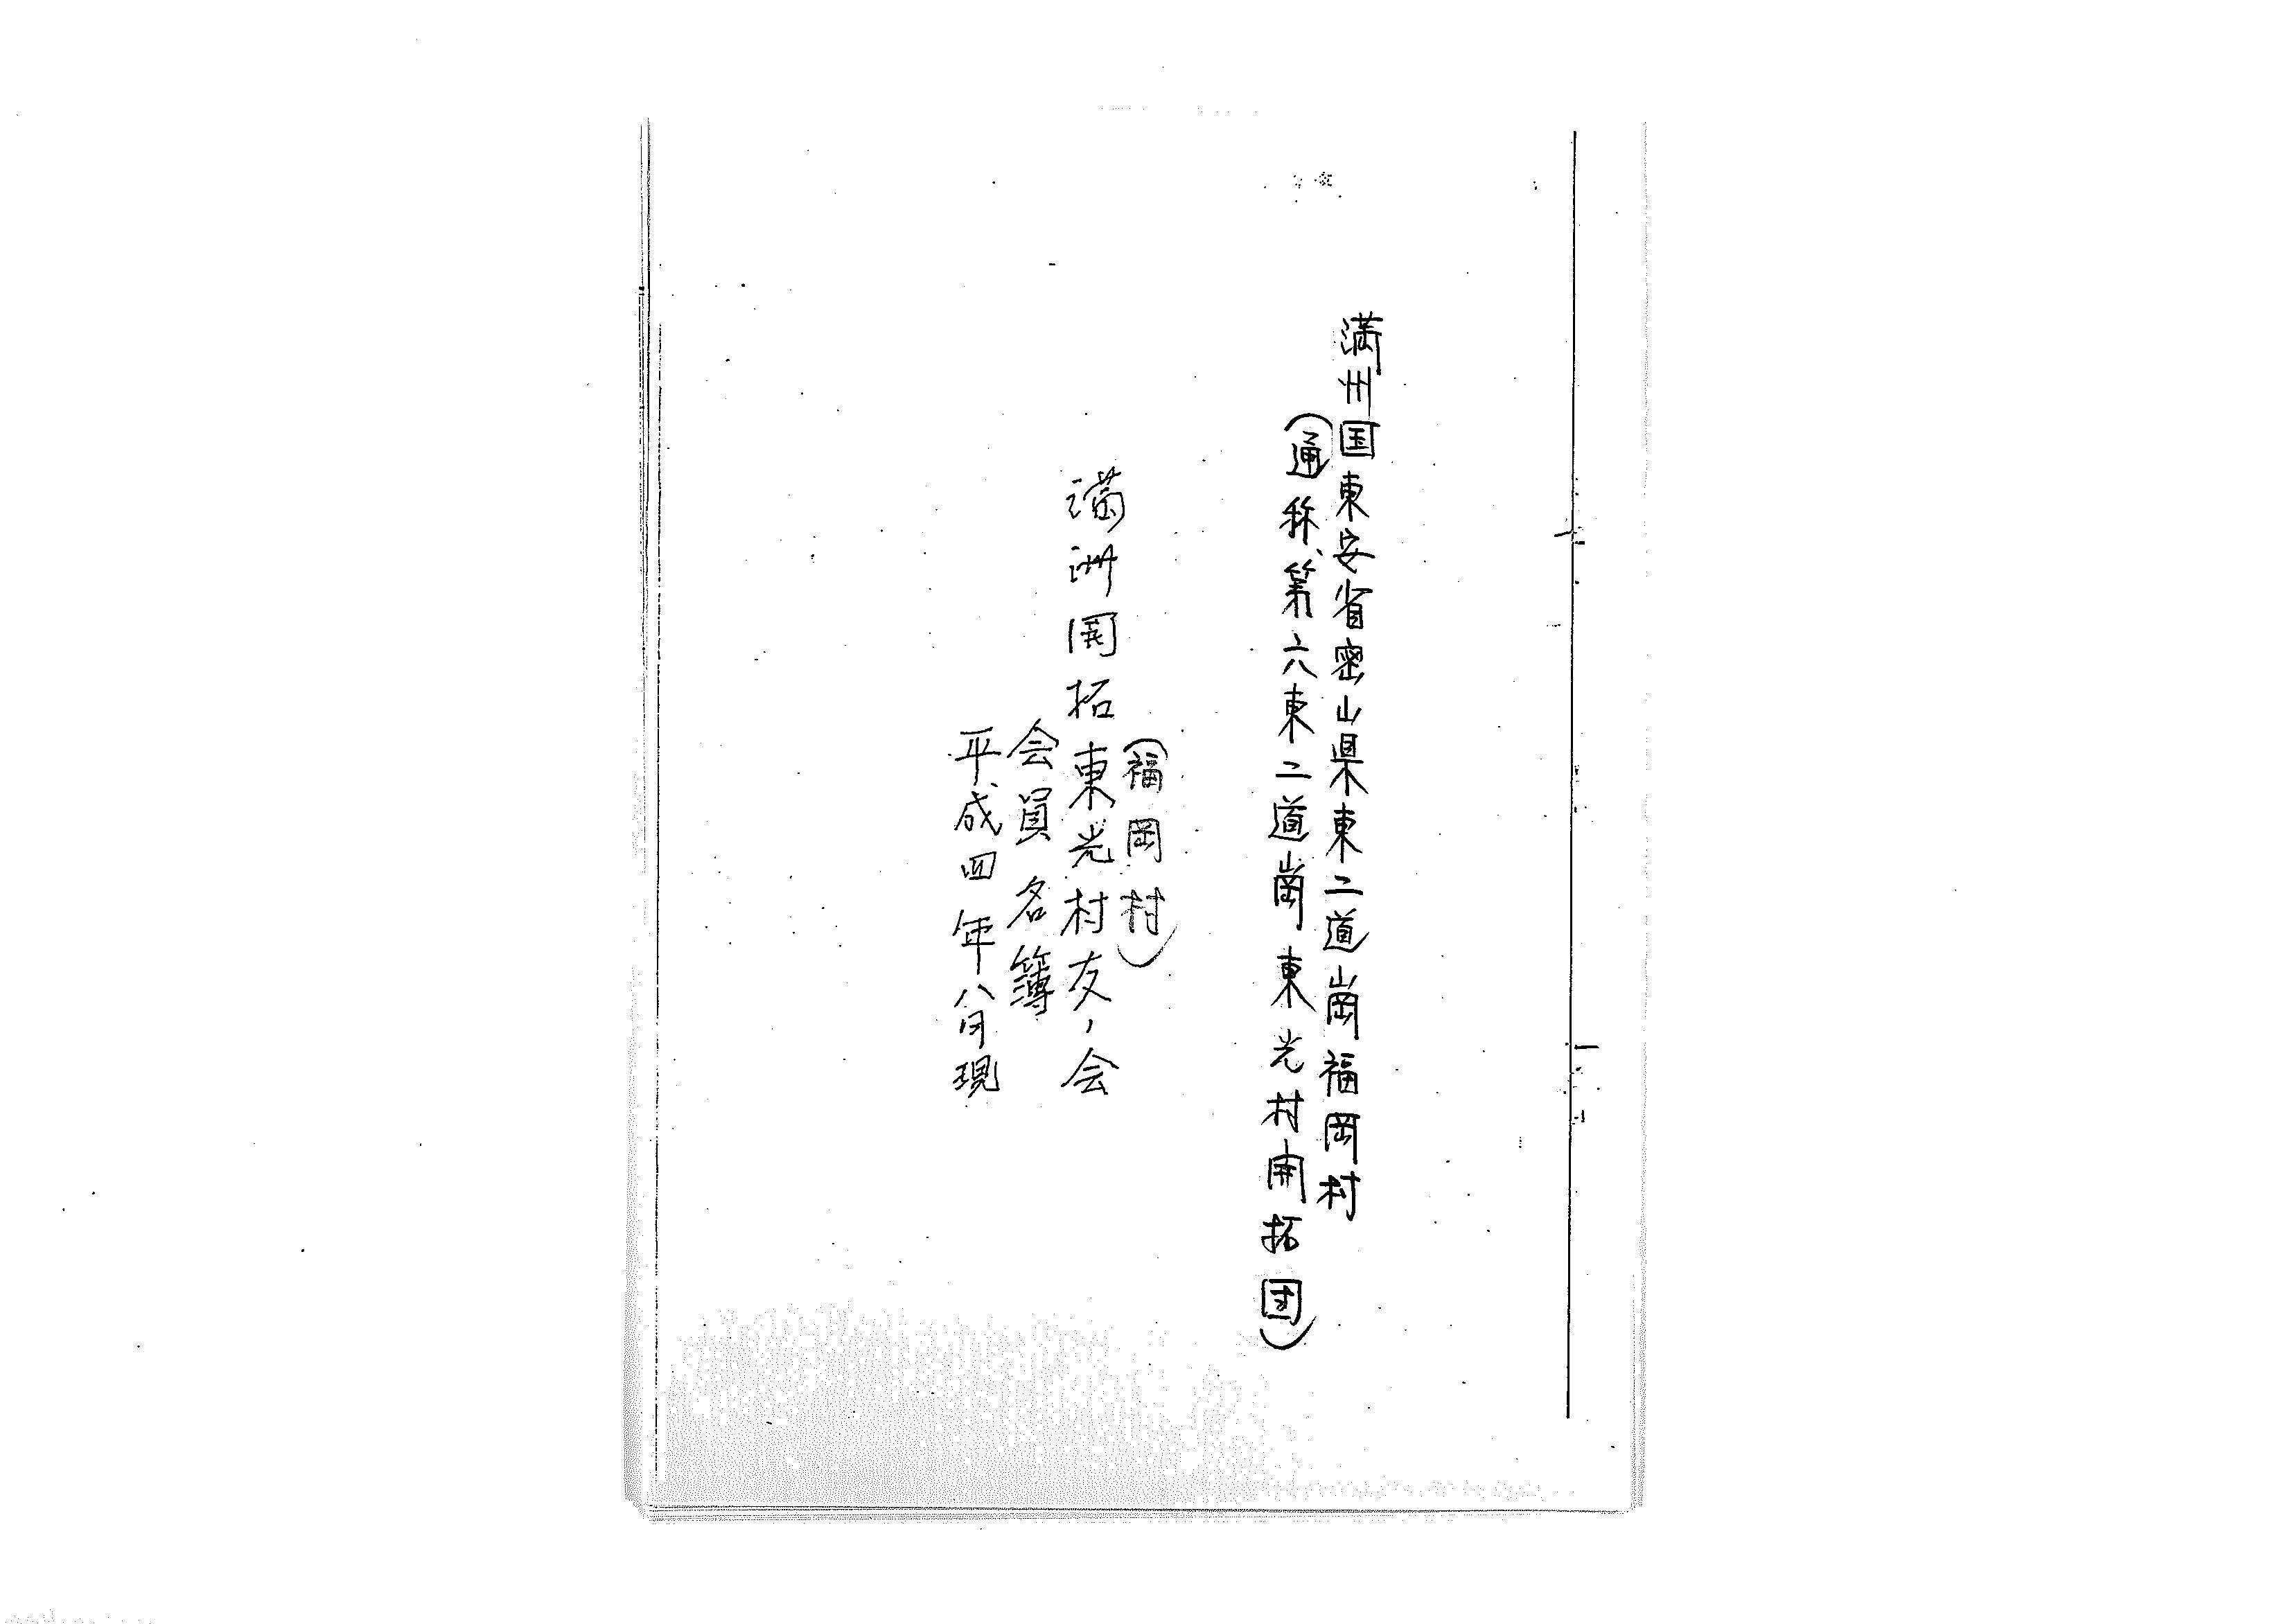 満州国東安省密山県東二道崗福岡村
(通称、第六東二道崗東光村開拓団)
(福岡村)
満洲開拓東光村友ノ会
会員名簿
平成四年八月現